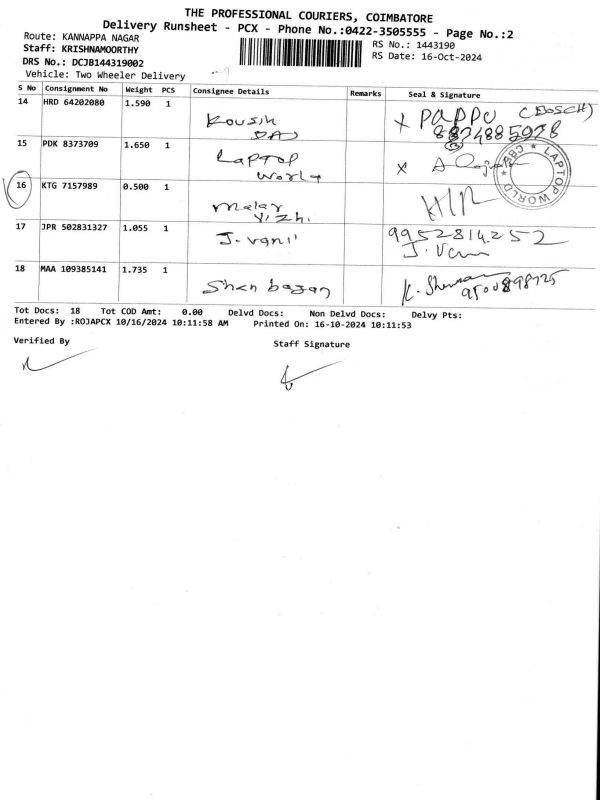 THE PROFESSIONAL COURIERS, COIMBATORE
Delivery Runsheet - PCX - Phone No.:0422-3505555 - Page No.:2
Route: KANNAPPA NAGAR
RS No.: 1443190
Staff: KRISHNAMOORTHY
RS Date: 16-Oct-2024
DRS No.: DCJB144319002
Vehicle: Two Wheeler Delivery
S No Consignment No Weight PCS Consignee Details Remarks Seal & Signature
14 HRD 64202080 1.590 1 Kousik DAS PAPPU (BOSCH)
15 PDK 8373709 1.650 1 Laptop World
LAPTOP WORLD CBE
16 KTG 7157989 0.500 1 malar vizhi
17 JPR 502831327 1.055 1 J. vani 9952814252
J. Vani
18 MAA 109385141 1.735 1 Shen bagan
Tot Docs: 18 Tot COD Amt: 0.00 Delvd Docs: Non Delvd Docs: Delvy Pts:
Entered By :ROJAPCX 10/16/2024 10:11:58 AM Printed On: 16-10-2024 10:11:53
Verified By
Staff Signature